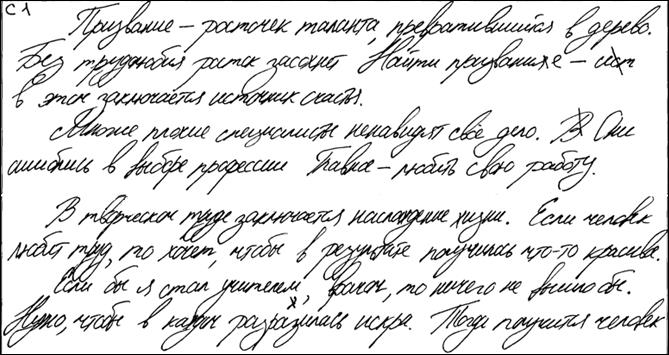 С1
Призвание – росточек таланта, превратившийся в дерево.
Без трудолюбия росток засохнет Найти призвание –
в этом заключается источник счастья.
Многие плохие специалисты ненавидят своё дело. Они
ошиблись в выборе профессии Главное – любить свою работу.
В творческом труде заключается наслаждение жизни. Если человек
любит труд, то хочет, чтобы в результате получилась что-то красиво.
Если бы я стал учителем, врачом, то ничего не вышло бы.
Нужно, чтобы в каждом разразилась искра. Тогда получится человек